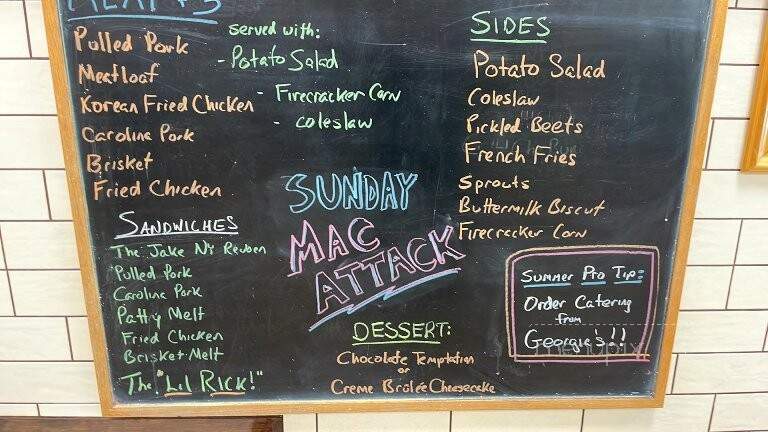 MEAT + 3
Pulled Pork
Meatloaf
Korean Fried Chicken
Carolina Pork
Brisket
Fried Chicken
served with:
- Potato Salad
- Firecracker Corn
- coleslaw
SANDWICHES
The Jake NY Reuben
Pulled Pork
Carolina Pork
Patty Melt
Fried Chicken
Brisket Melt
The "LIL RICK!"
SUNDAY
MAC
ATTACK
DESSERT:
Chocolate Temptation
or
Creme Brûlée Cheesecake
SIDES
Potato Salad
Coleslaw
Pickled Beets
French Fries
Sprouts
Buttermilk Biscut
Firecracker Corn
Summer Pro Tip:
Order Catering
from
Georgie's!!
menupix